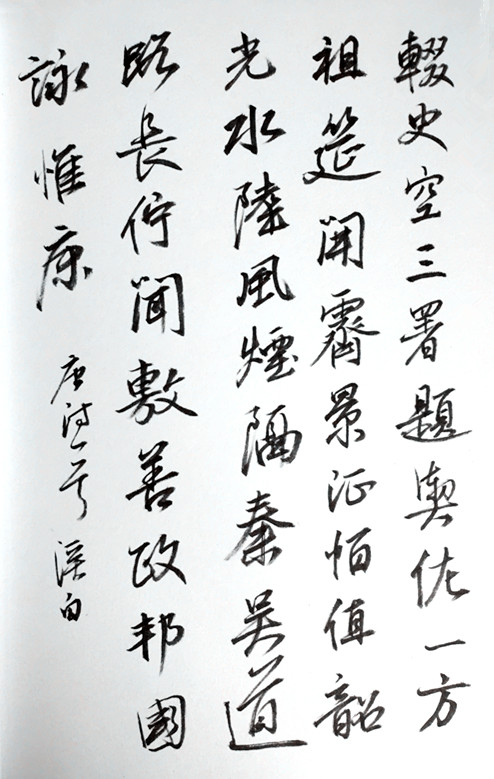 輟史空三署題輿佐一方
祖筵開霽景征陌值韶
光水陸風煙隔秦吳道
路長佇聞敷善政邦國
詠惟康
唐詩一首